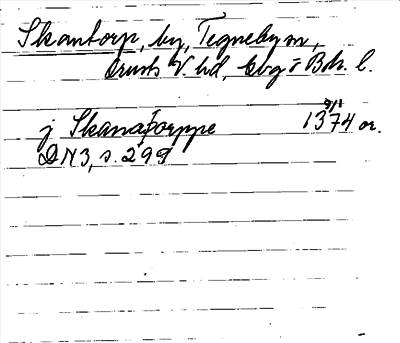 Skantorp, by, Tegneby sn,
Orusts V. hd, Gbg o Boh. l.
9/1
j Skanaþorppe 1374 or.
DN 3, s. 299